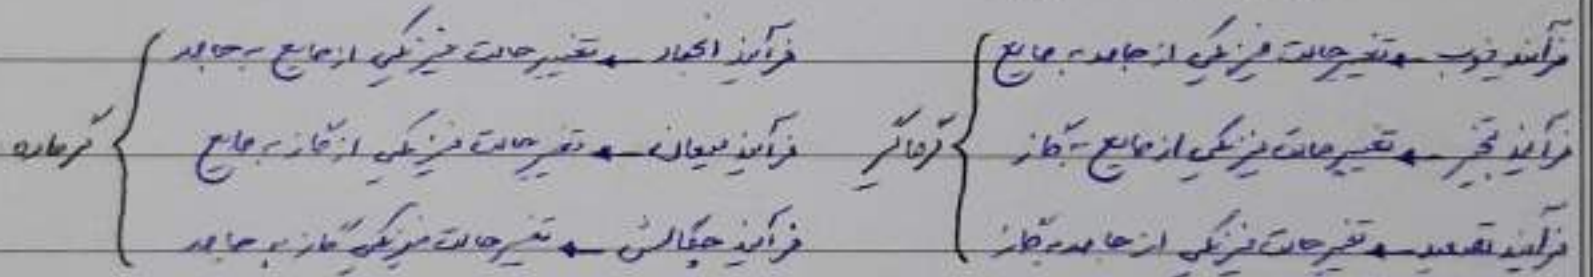 فرآیند ذوب ← تغییر حالت فیزیکی از جامد به مایع
فرآیند تبخیر ← تغییر حالت فیزیکی از مایع به گاز
فرآیند تصعید ← تغییر حالت فیزیکی از جامد به گاز
گرماگیر
فرآیند انجماد ← تغییر حالت فیزیکی از مایع به جامد
فرآیند میعان ← تغییر حالت فیزیکی از گاز به مایع
فرآیند چگالش ← تغییر حالت فیزیکی گاز به جامد
گرماده